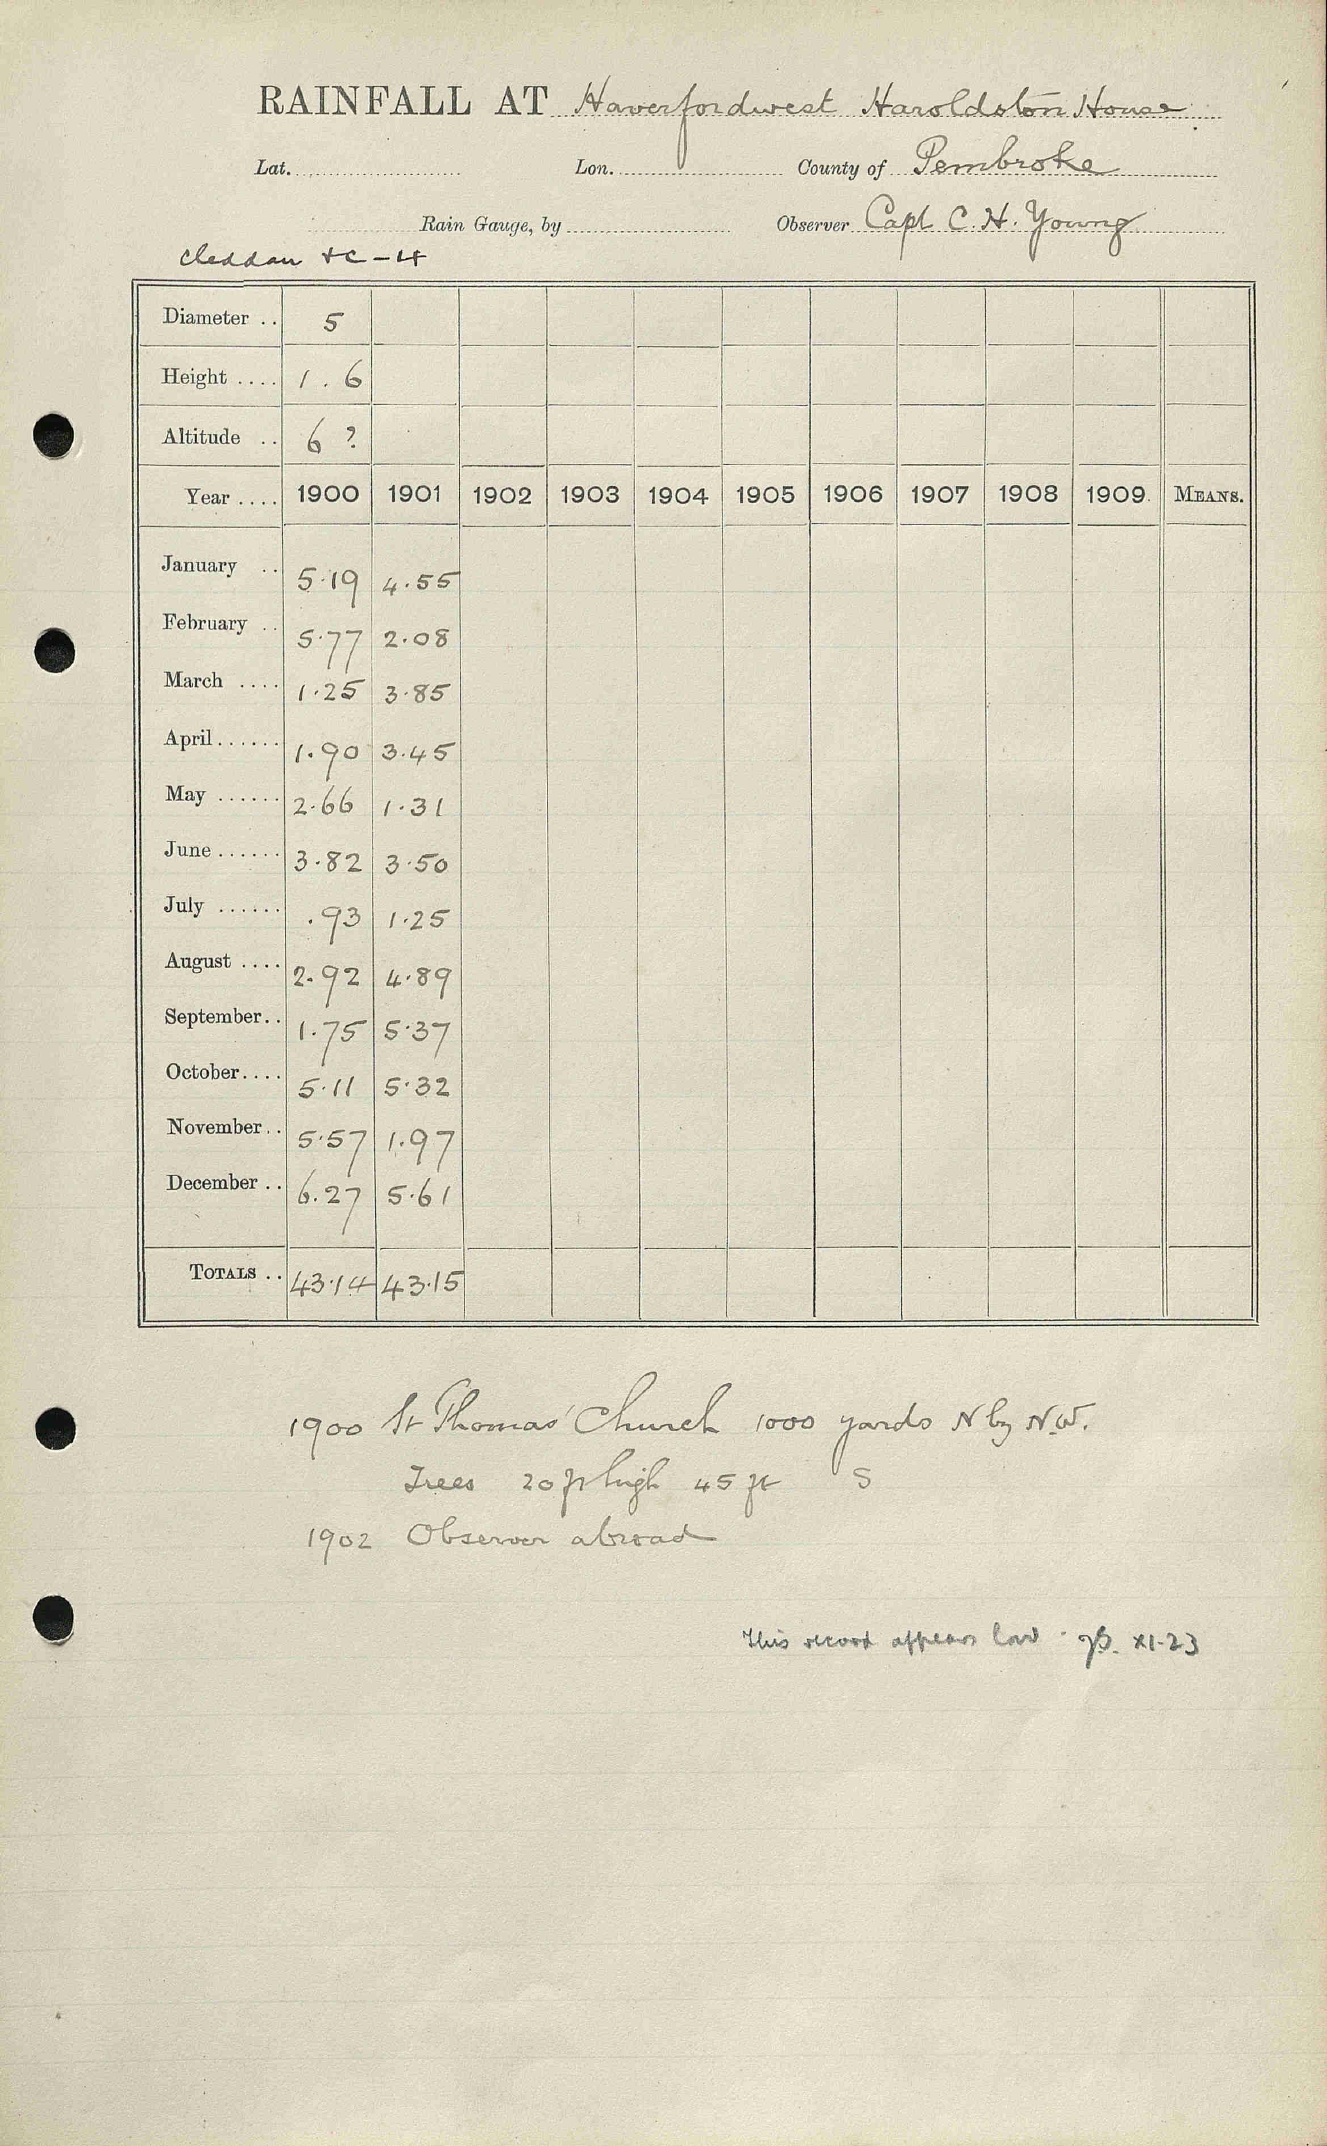 RAINFALL AT Haverfordwest Haroldston House
Lat. Lon. County of Pembroke
Rain Gauge, by Observer Capt C. H. Young
Cleddau &c - 4
Diameter .. 5
Height .... 1 . 6
Altitude .. 6 ?
Year .... 1900 1901 1902 1903 1904 1905 1906 1907 1908 1909. MEANS.
January .. 5.19 4.55
February .. 5.77 2.08
March .... 1.25 3.85
April...... 1.90 3.45
May ...... 2.66 1.31
June ...... 3.82 3.50
July ...... .93 1.25
August .... 2.92 4.89
September.. 1.75 5.37
October.... 5.11 5.32
November.. 5.57 1.97
December .. 6.27 5.61
TOTALS .. 43.14 43.15
1900 St Thomas' Church 1000 yards N by N.W.
Trees 20 ft high 45 ft S
1902 Observer abroad
This record appears low XI-23